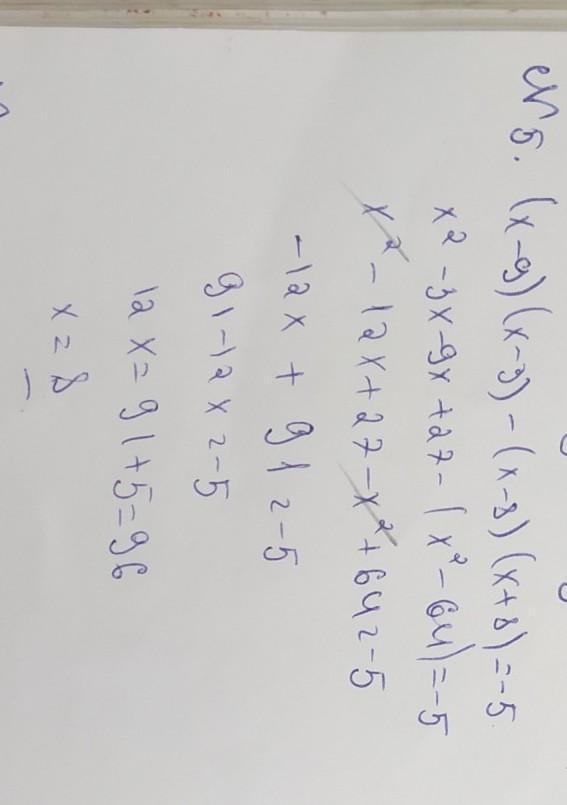 №5. (x-9)(x-3)-(x-8)(x+8)=-5
x²-3x-9x+27-(x²-64)=-5
x²-12x+27-x²+64=-5
-12x+91=-5
91-12x=-5
12x=91+5=96
x=8